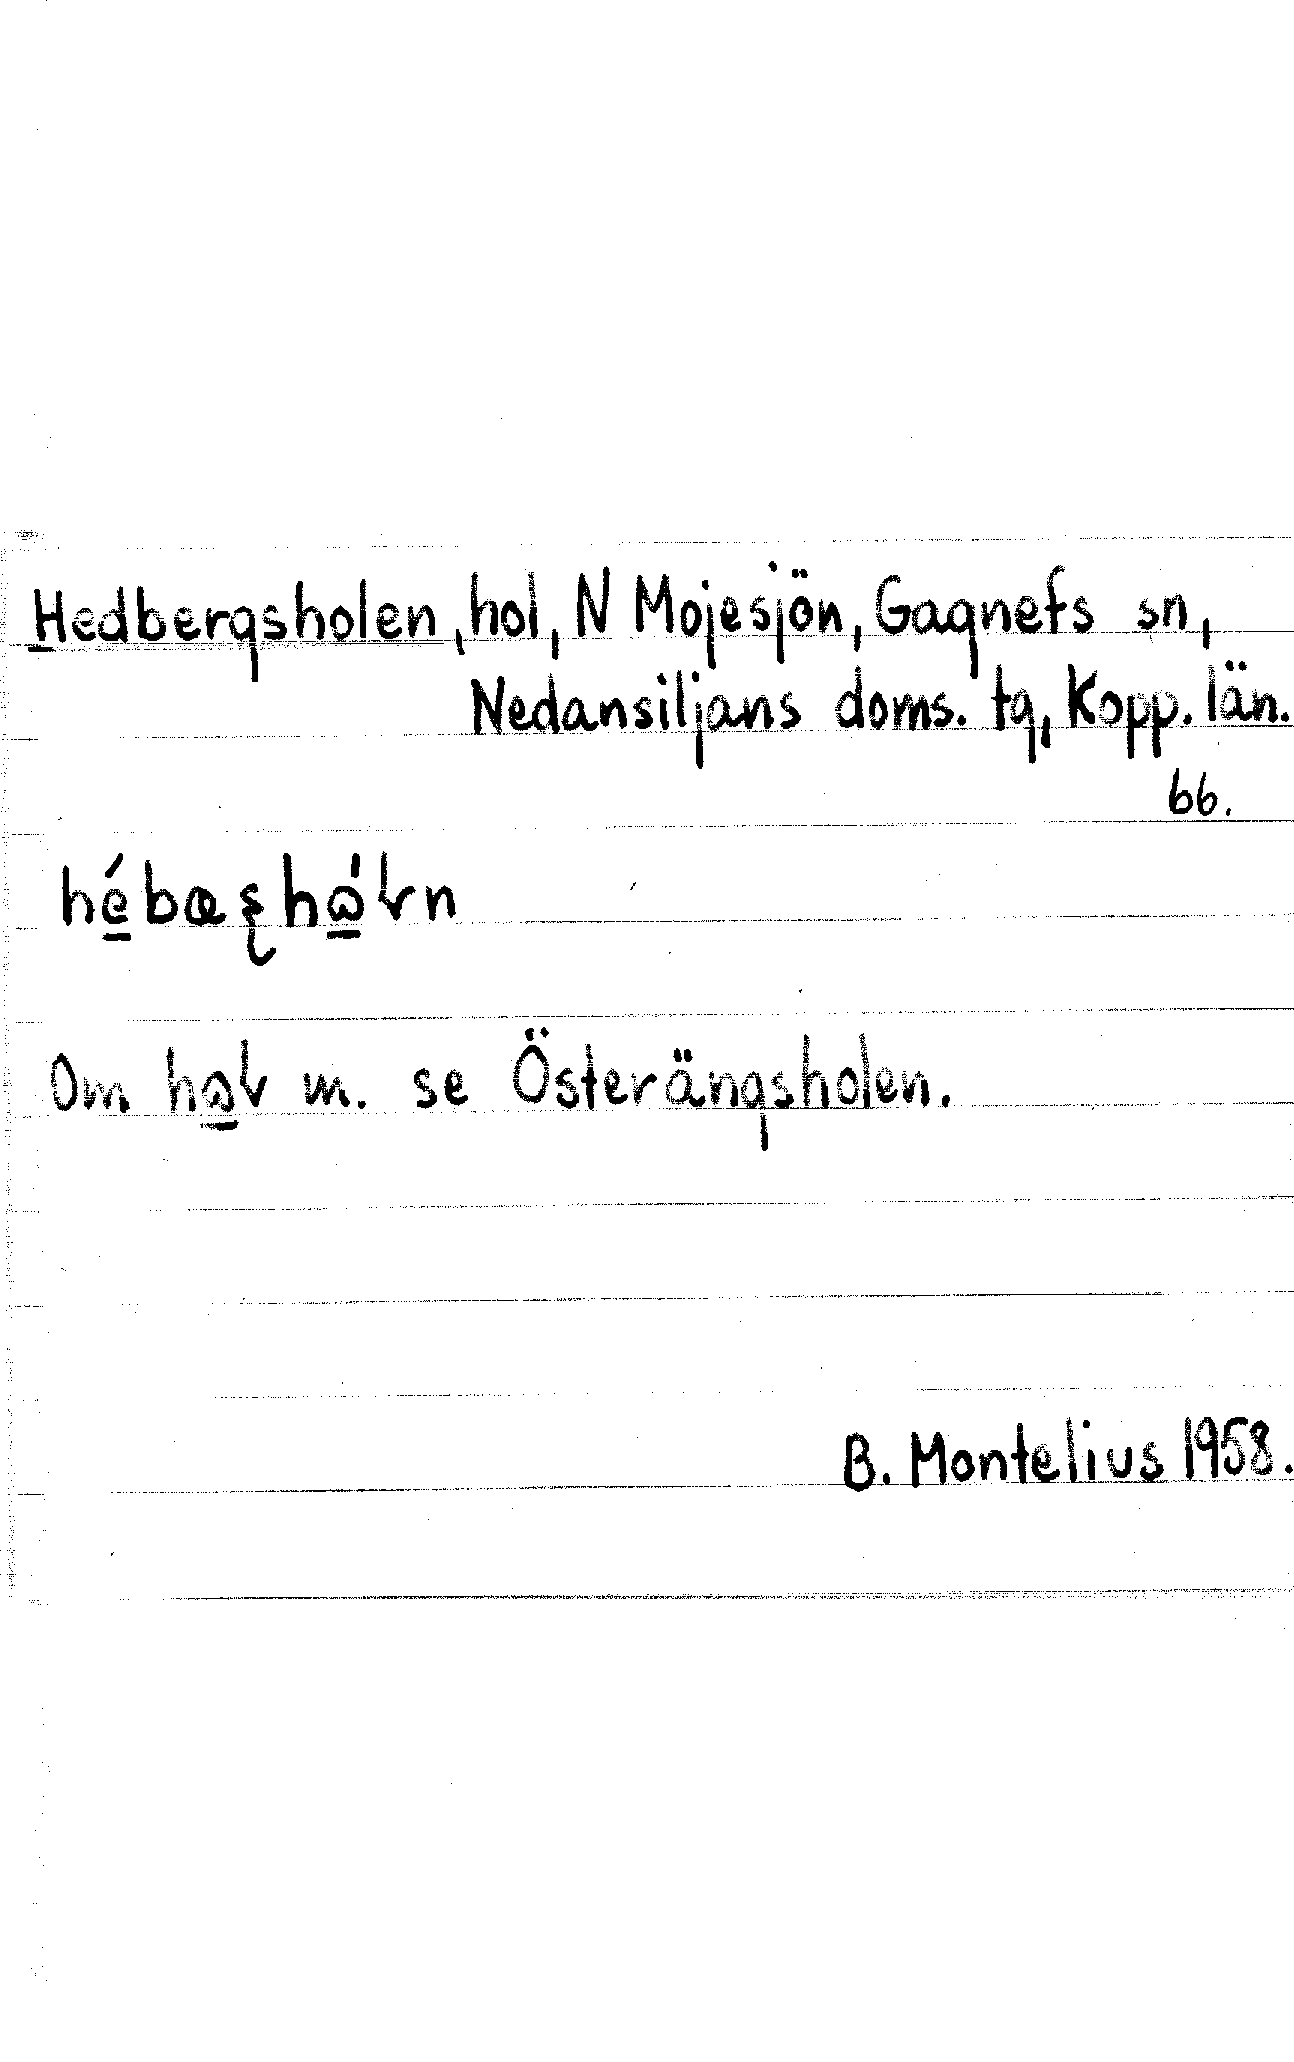 Hedbergsholen, hol, N Mojesjön, Gagnefs sn,
Nedansiljans doms. tg, Kopp. län.
66.
Om m. se Österängsholen.
B. Montelius 1958.